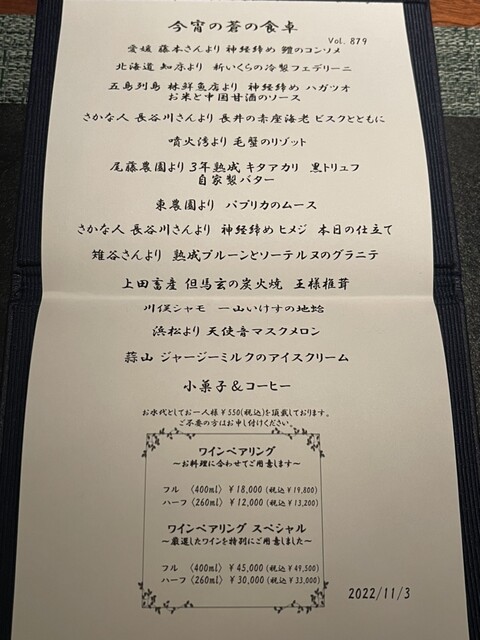 今宵の蒼の食卓
Vol. 879
愛媛 藤本さんより 神経締め 鱧のコンソメ
北海道 知床より 新いくらの冷製フェデリーニ
五島列島 林鮮魚店より 神経締め ハガツオ
お米と中国甘酒のソース
さかな人 長谷川さんより 長井の赤座海老 ビスクとともに
噴火湾より 毛蟹のリゾット
尾藤農園より 3年熟成 キタアカリ 黒トリュフ
自家製バター
東農園より パプリカのムース
さかな人 長谷川さんより 神経締め ヒメジ 本日の仕立て
雉谷さんより 熟成プルーンとソーテルヌのグラニテ
上田畜産 但馬玄の炭火焼 王様椎茸
川俣シャモ 一山いけすの地蛤
浜松より 天使音マスクメロン
蒜山 ジャージーミルクのアイスクリーム
小菓子&コーヒー
お水代としてお一人様¥550(税込)を頂戴しております。
ご不要の方はお申し付けください。
ワインペアリング
～お料理に合わせてご用意します～
フル 〈400ml〉 ¥18,000 (税込¥19,800)
ハーフ 〈260ml〉 ¥12,000 (税込¥13,200)
ワインペアリング スペシャル
～厳選したワインを特別にご用意しました～
フル 〈400ml〉 ¥45,000 (税込¥49,500)
ハーフ 〈260ml〉 ¥30,000 (税込¥33,000)
2022/11/3